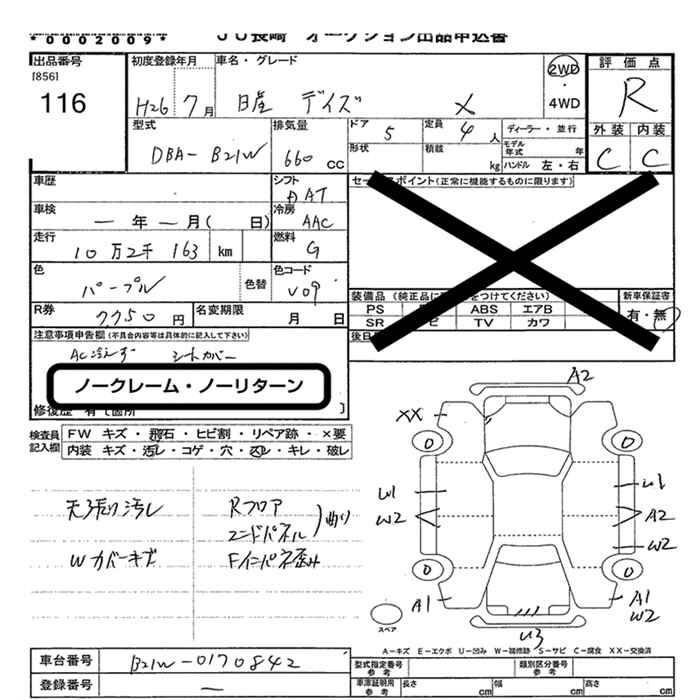 *0002009* JU長崎 オークション出品申込書
出品番号 初度登録年月 車名・グレード 2WD 評価点
[856]
116 H26 7月 日産 デイズ X ・ R
4WD
型式 排気量 ドア 5 定員 4人 ディーラー・並行 外装 内装
DBA-B21W 660cc 形状 積載 kg モデル年式 年 C C
ハンドル 左・右
車歴 シフト セールスポイント(正常に機能するものに限ります)
DAT
車検 ー年ー月( 日) 冷房 AAC
走行 10万2千163 km 燃料 G
色 パープル 色替 色コード V09
装備品 (純正品に をつけてください) 新車保証書
PS ABS エアB 有・無
SR TV カワ
R券 7,750円 名変期限 月 日
後日
注意事項申告欄(不具合内容等は具体的に記入して下さい)
AC冷えず シートカバー
ノークレーム・ノーリターン
修復歴 有て箇所
検査員記入欄 FW キズ・飛石・ヒビ割・リペア跡・×要
内装 キズ・汚レ・コゲ・穴・スレ・キレ・破レ
天張り汚レ Rフロア
エンドパネル 曲り
Wカバーキズ Fインパネ歪み
A2
XX
0 0
W1 U1
W2 A2
W2
0 0
A1 A1
W2
スペア U3
A-キズ E-エクボ U-凹み W-補修跡 S-サビ C-腐食 XX-交換済
車台番号 B21W-0170842 型式指定番号 参考 類別区分番号 参考
登録番号 ー 車庫証明用 参考 長さ cm 幅 cm 高さ cm